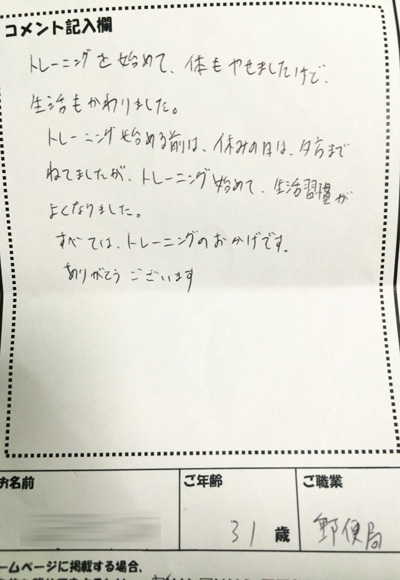 コメント記入欄
トレーニングを始めて、体もやせましたけど、
生活もかわりました。
トレーニング始める前は、休みの日は、夕方まで
ねてましたが、トレーニング始めて、生活習慣が
よくなりました。
すべては、トレーニングのおかげです。
ありがとうございます
お名前
ご年齢
ご職業
31 歳
郵便局
ホームページに掲載する場合、